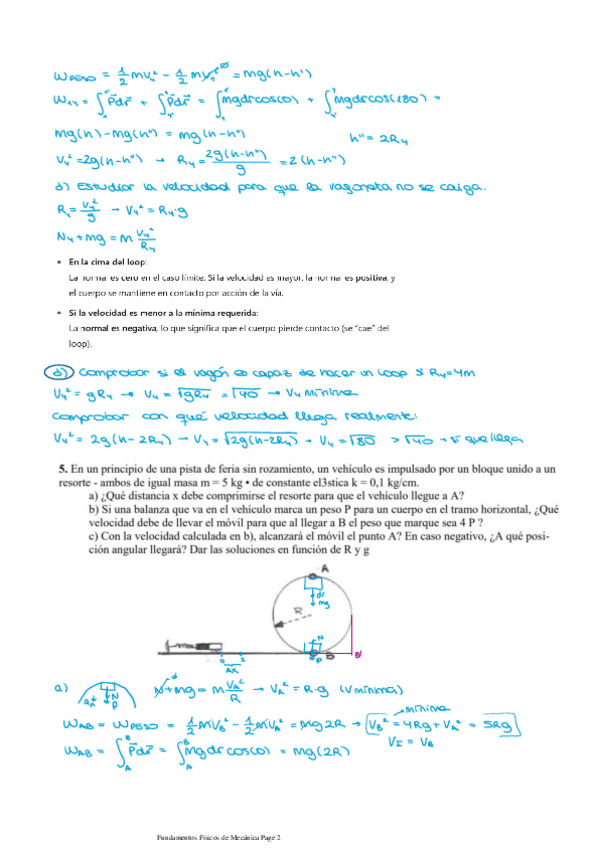 W_PESO = 1/2 mv₄² - 1/2 mv₁² = mg(h-h')
W₁₄ = ∫P⃗dr⃗ + ∫P⃗dr⃗ = ∫mgdrcos(0) + ∫mgdrcos(180) =
mg(h) - mg(h") = mg(h-h") h" = 2R₄
V₄² = 2g(h-h") → R₄ = 2g(h-h")/g = 2(h-h")
d) Estudiar la velocidad para que la vagoneta no se caiga.
R₄ = V₄²/g → V₄² = R₄·g
N₄ + mg = m V₄²/R₄
• En la cima del loop:
La normal es cero en el caso límite. Si la velocidad es mayor, la normal es positiva, y
el cuerpo se mantiene en contacto por acción de la vía.
• Si la velocidad es menor a la mínima requerida:
La normal es negativa, lo que significa que el cuerpo pierde contacto (se "cae" del
loop).
d) Comprobar si el vagón es capaz de hacer un loop si R₄=4m
V₄² = gR₄ → V₄ = √gR₄ = √40 → V₄ mínima
Comprobar con qué velocidad llega realmente:
V₄² = 2g(h-2R₄) → V₄ = √2g(h-2R₄) → V₄ = √80 > √40 → sí que llega
5. En un principio de una pista de feria sin rozamiento, un vehículo es impulsado por un bloque unido a un
resorte - ambos de igual masa m = 5 kg • de constante el3stica k = 0,1 kg/cm.
a) ¿Qué distancia x debe comprimirse el resorte para que el vehículo llegue a A?
b) Si una balanza que va en el vehículo marca un peso P para un cuerpo en el tramo horizontal, ¿Qué
velocidad debe de llevar el móvil para que al llegar a B el peso que marque sea 4 P ?
c) Con la velocidad calculada en b), alcanzará el móvil el punto A? En caso negativo, ¿A qué posi-
ción angular llegará? Dar las soluciones en función de R y g
A
dr
mg
R
N
P
B
B'
1 2
Δx
a) aₙ N P N + mg = m V_A²/R → V_A² = R·g (V mínima)
mínima
W_AB = W_PESO = 1/2 mV_B² - 1/2 mV_A² = mg2R → V_B² = 4Rg + V_A² = 5Rg
V_I = V_B
W_AB = ∫P⃗dr⃗ = ∫mgdrcos(0) = mg(2R)
Fundamentos Físicos de Mecánica Page 2